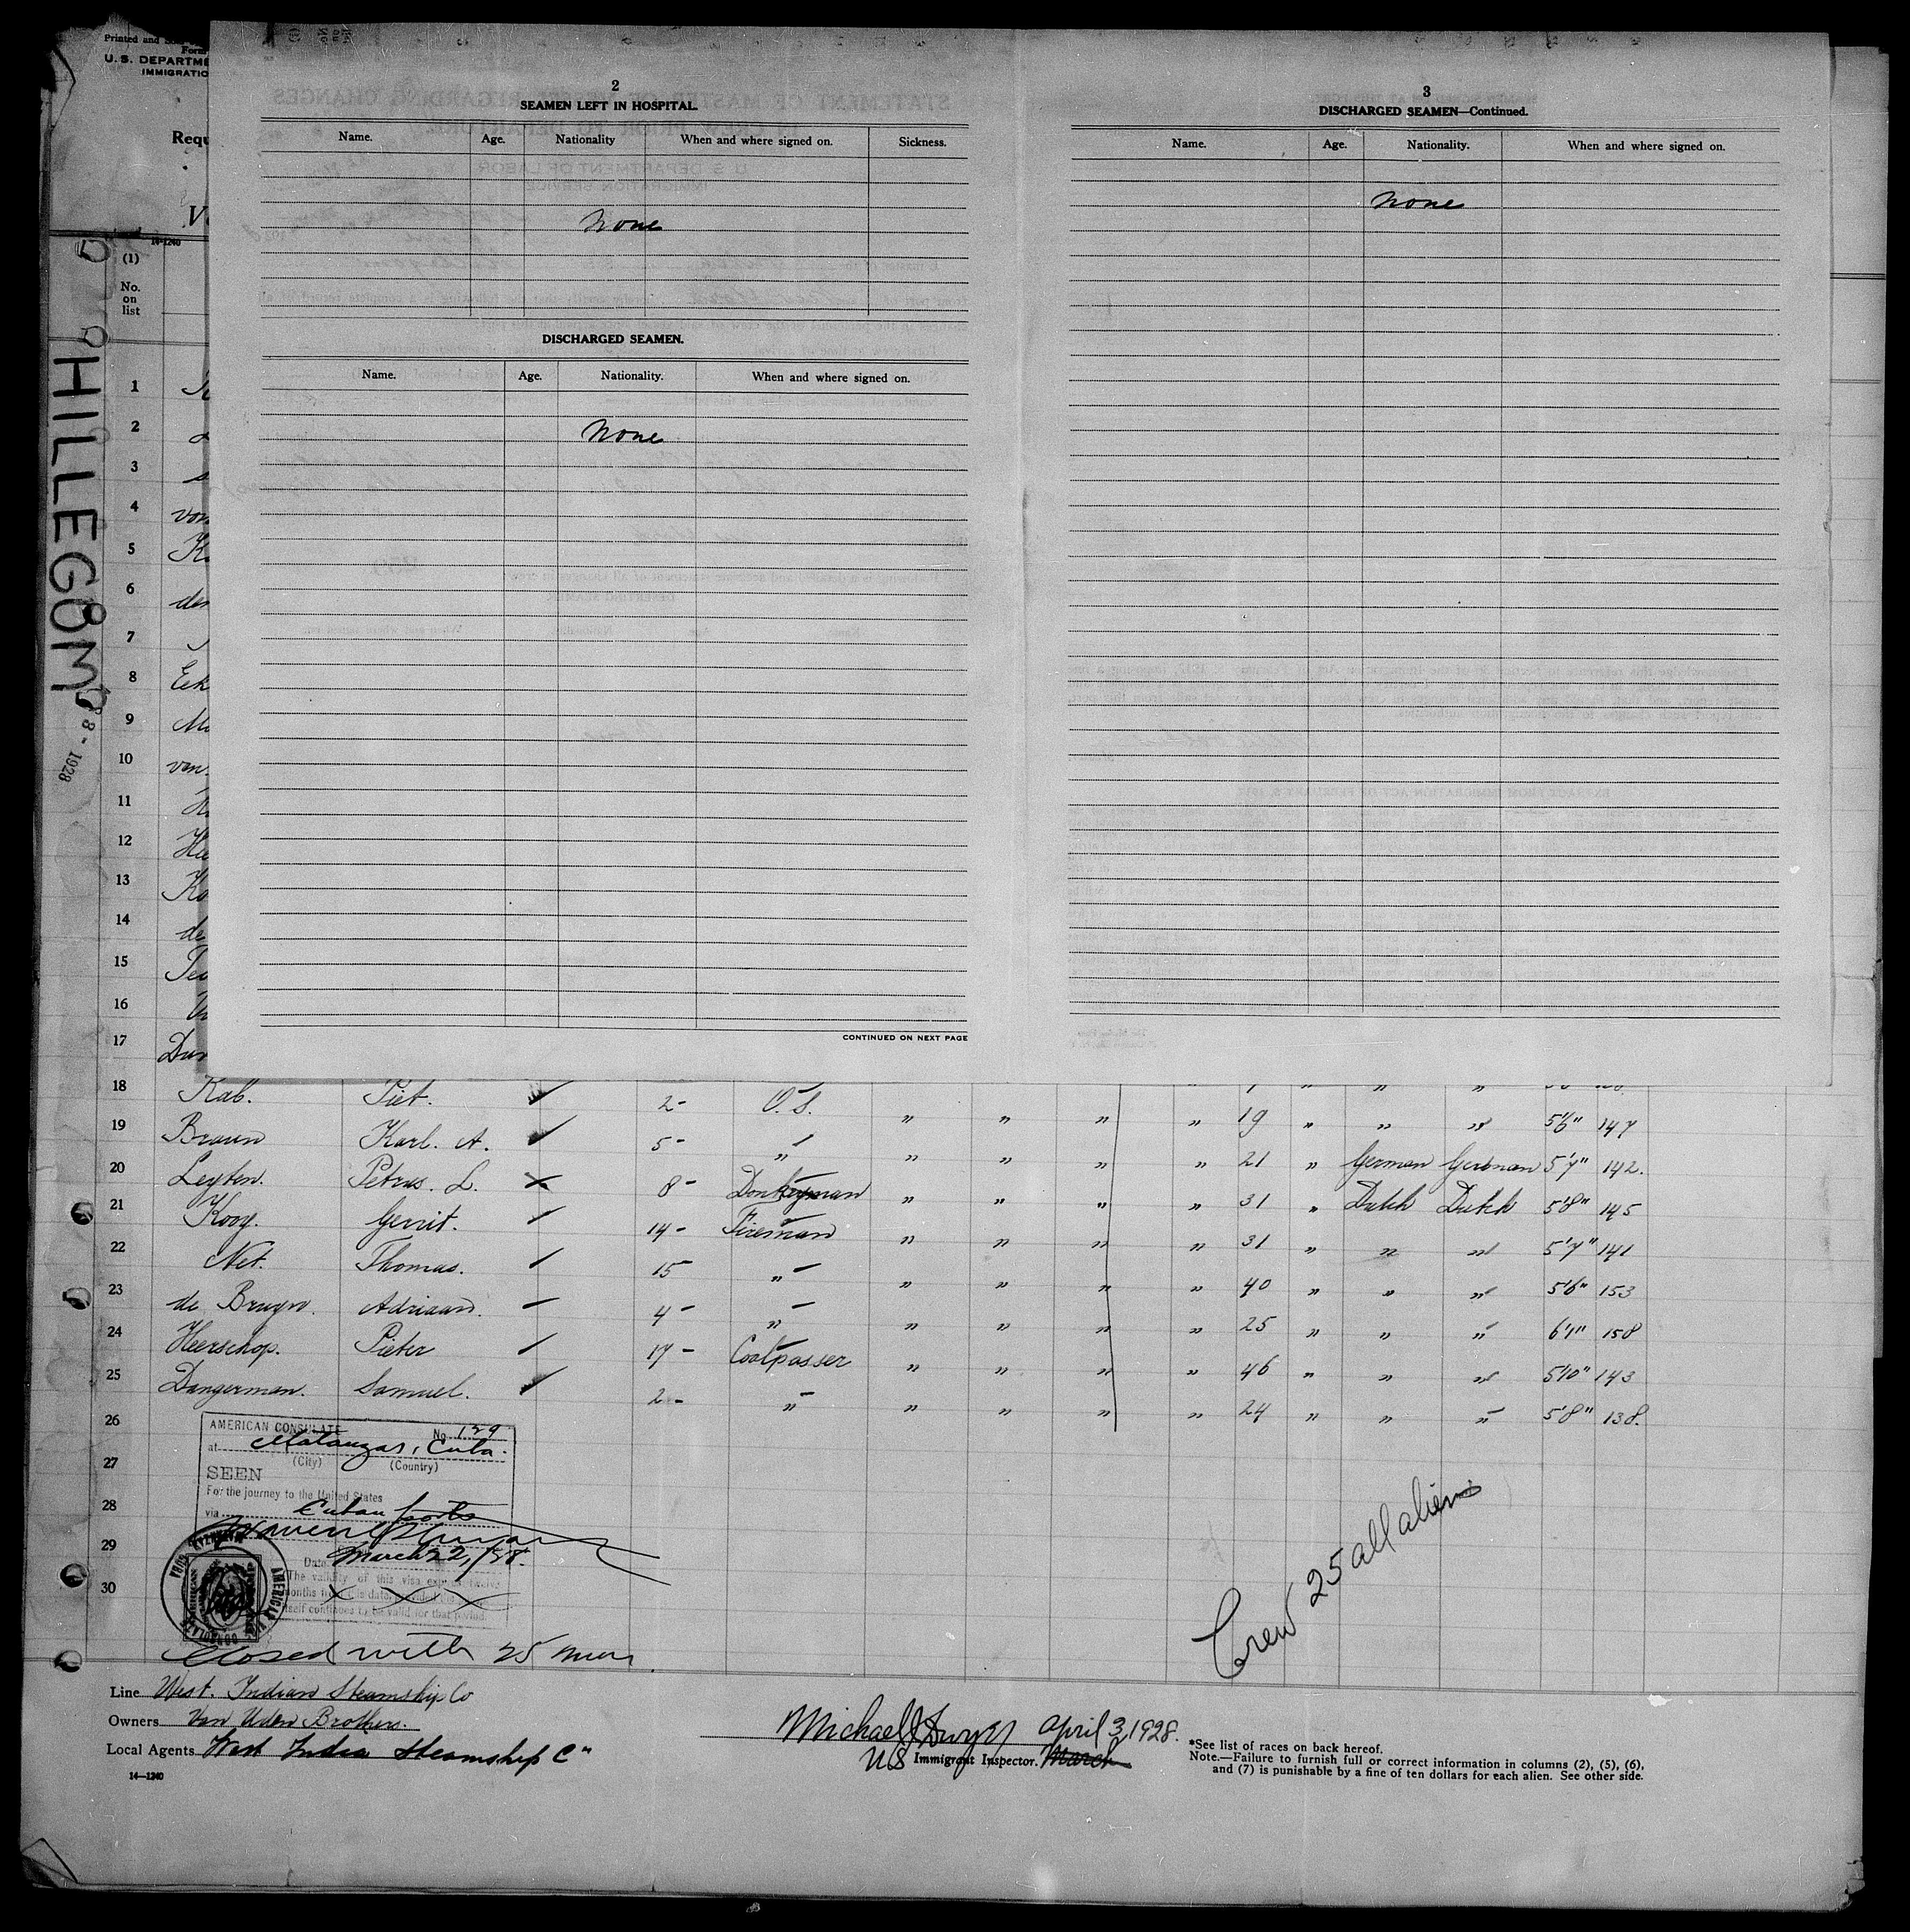 Printed and
Form
U. S. DEPARTME
IMMIGRATIO
Requ
14-1240
(1)
No.
on
list
HILLEGOM
8 - 1928
2
SEAMEN LEFT IN HOSPITAL.
Name. Age. Nationality When and where signed on. Sickness.
None
DISCHARGED SEAMEN.
Name. Age. Nationality. When and where signed on.
None
CONTINUED ON NEXT PAGE
3
DISCHARGED SEAMEN—Continued.
Name. Age. Nationality. When and where signed on.
None
1
2
3
4 von
5
6 der
7
8 Eek
9
10 van
11
12
13 Ko
14 de
15
16
17
18 Kab. Piet. 2- O.S. " " " " 19 " " " 5'6" 147
19 Braun Karl. A. 5- " " " " " 21 " German German 5'7" 142.
20 Leyten. Petrus. L. 8- Donkeyman " " " " 31 " Dutch Dutch 5'8" 145
21 Kooy. Gerrit. 14- Fireman " " " " 31 " " " 5'7" 141
22 Net. Thomas. 15- " " " " " 40 " " " 5'6" 153
23 de Bruyn. Adriaan. 4- " " " " " 25 " " " 6'1" 158
24 Heerschop. Pieter 17- Coalpasser " " " " 46 " " " 5'10" 143
25 Dangerman. Samuel. 2- " " " " " 24 " " " 5'8" 138.
26
27
28
29
30
AMERICAN CONSULATE No. 129
at Matanzas, Cuba.
(City) (Country)
SEEN
For the journey to the United States
via Cuban ports
Date March 22, /28.
The validity of this visa expires twelve
months from its date, provided the
itself continues to be valid for that period.
x x x
Closed with 25 men
Crew 25 all aliens
Line West. Indian Steamship Co
Owners Van Uden Brothers.
Local Agents West India Steamship Co
14—1240
Michael J Dwyer April 3, 1928.
US Immigrant Inspector. March
*See list of races on back hereof.
Note.—Failure to furnish full or correct information in columns (2), (5), (6),
and (7) is punishable by a fine of ten dollars for each alien. See other side.